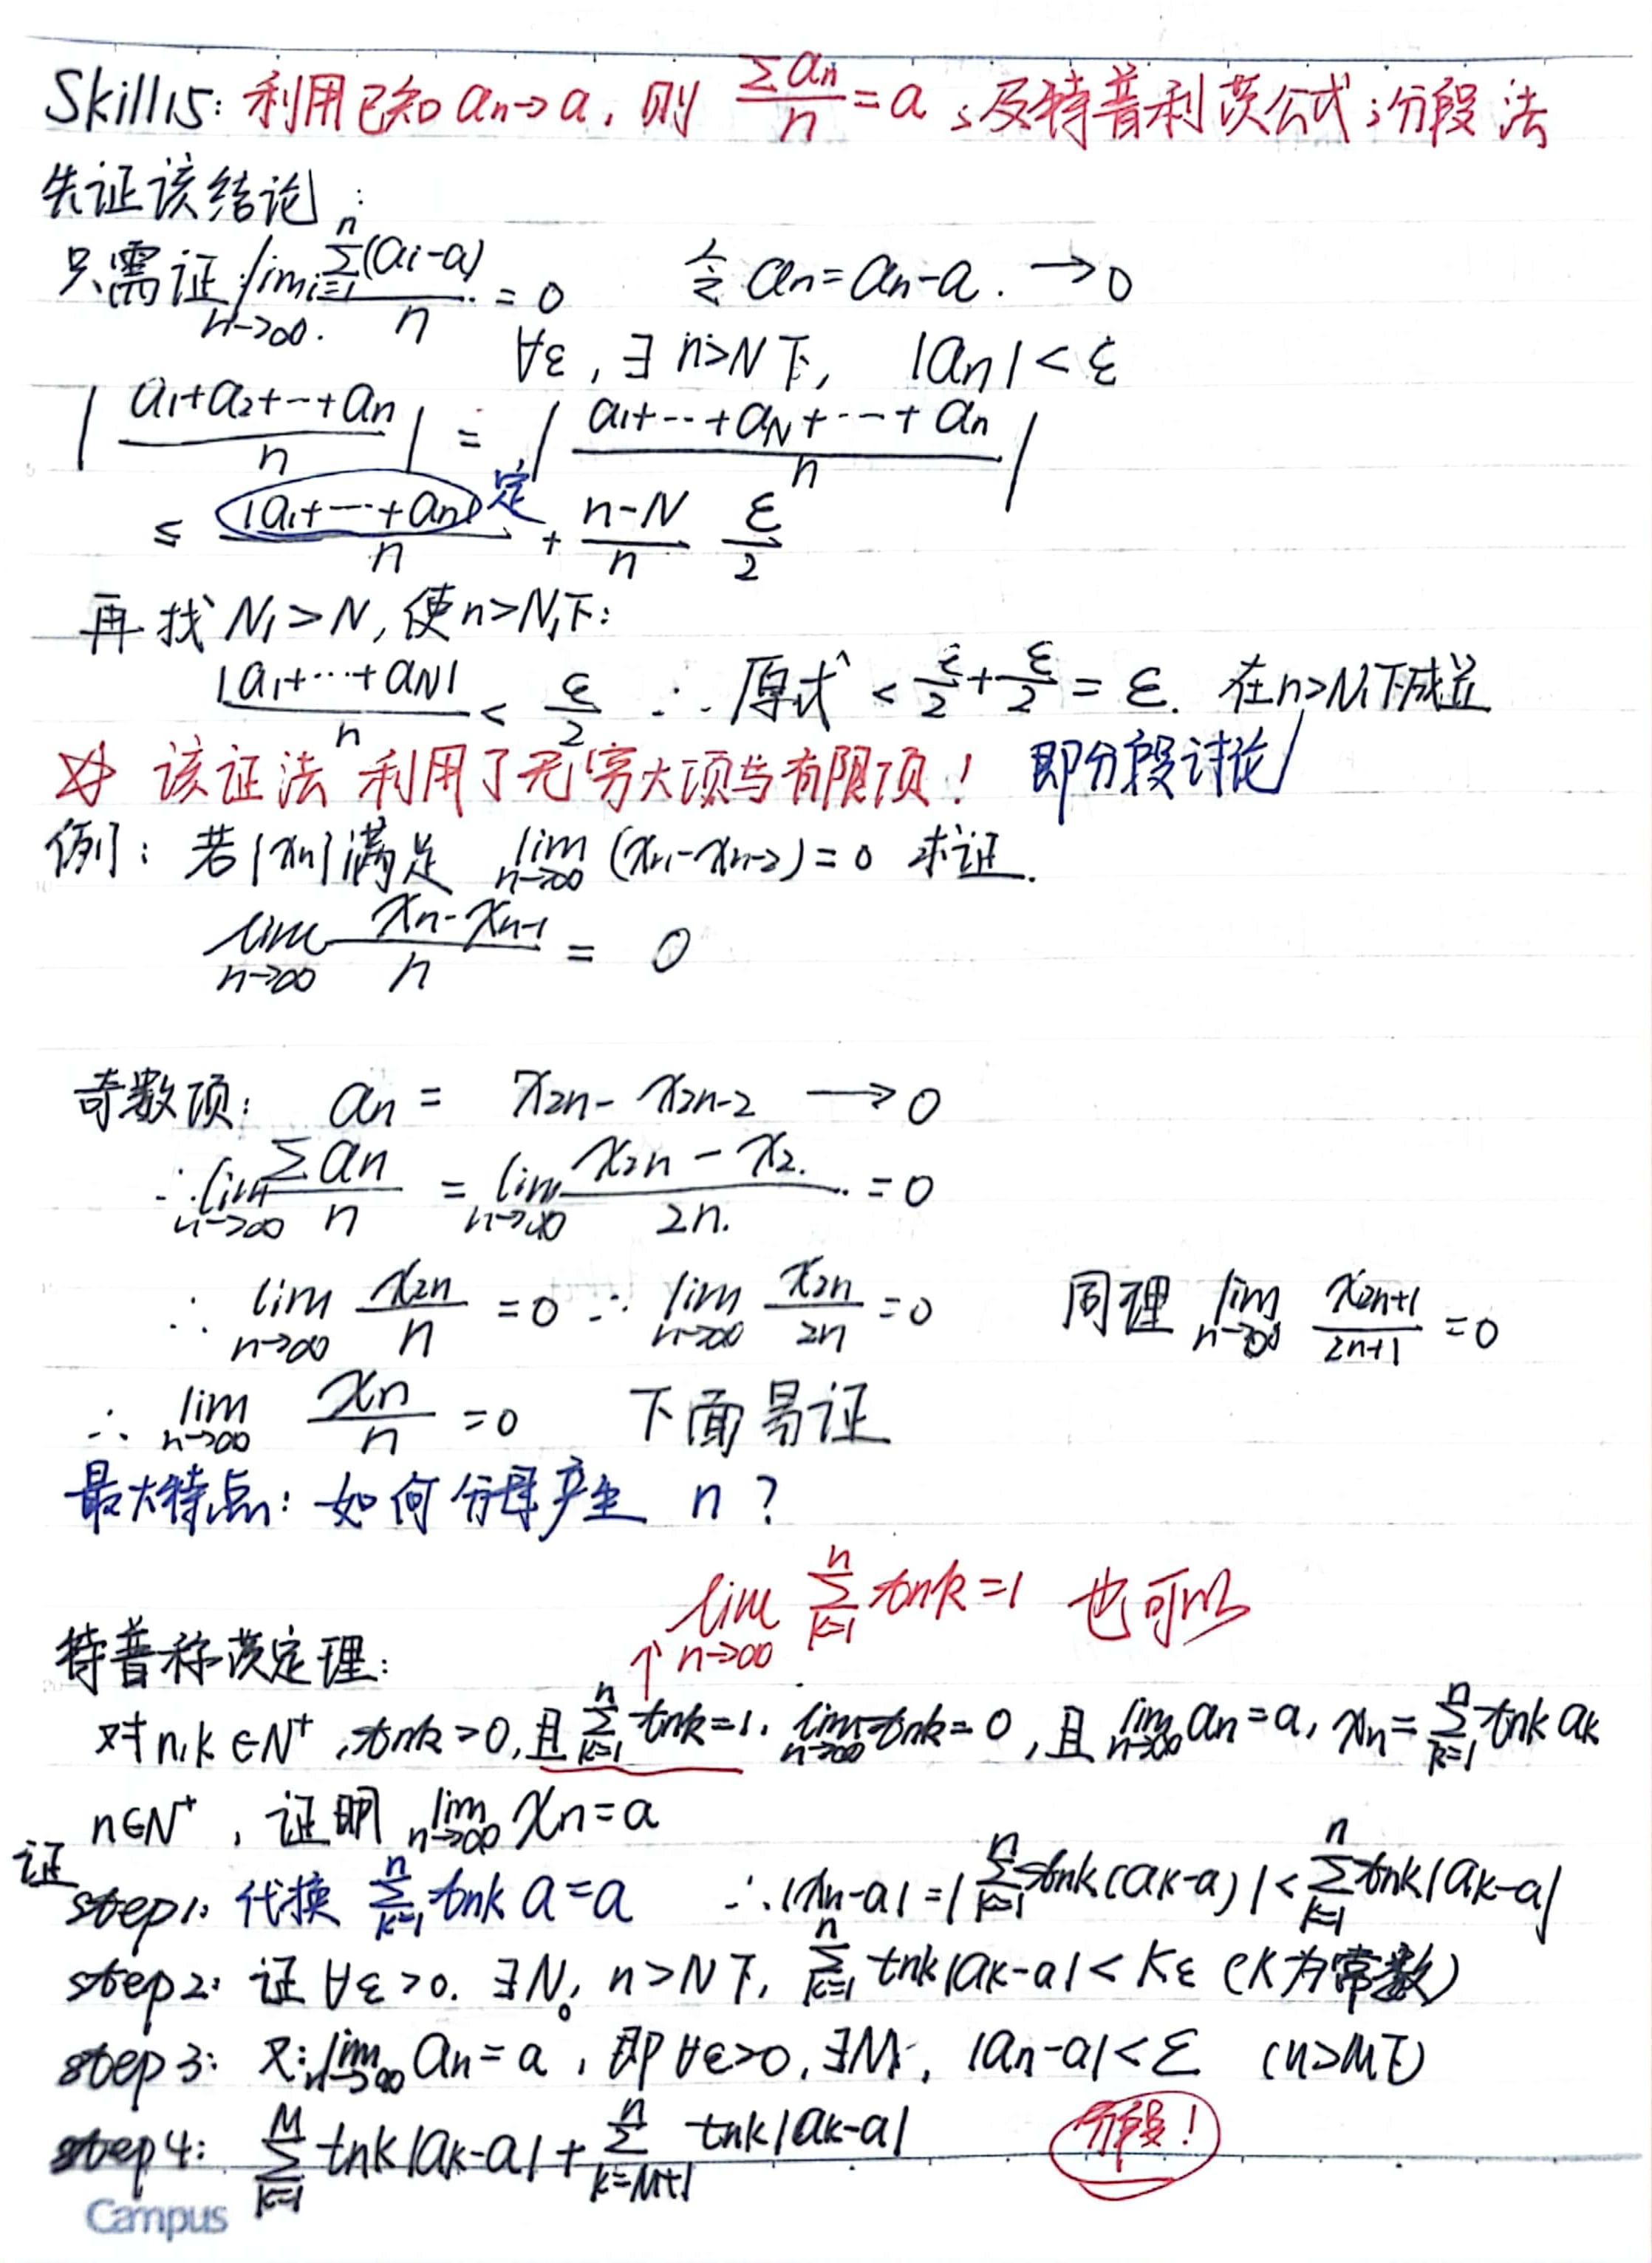 Skill15: 利用已知 aₙ→a, 则 Σaₙ/n = a ; 及特普利茨公式; 分段法
先证该结论:
只需证 lim_{n→∞} Σ_{i=1}^{n}(aᵢ-a)/n = 0 令 aₙ=aₙ-a. →0
∀ε, ∃ n>N下, |aₙ|<ε
|(a₁+a₂+…+aₙ)/n| = |(a₁+…+a_N+…+aₙ)/n|
≤ |a₁+…+aₙ|/n 定 + (n-N)/n ε/2
再找 N₁>N, 使n>N₁下:
|a₁+…+a_N|/n < ε/2 ∴ 原式 < ε/2+ε/2 = ε. 在n>N₁下成立
该证法利用了无穷大项与有限项! 即分段讨论
例: 若|xₙ|满足 lim_{n→∞} (xₙ-xₙ₋₂)=0 求证.
lim_{n→∞} (xₙ-xₙ₋₁)/n = 0
奇数项: aₙ = x₂ₙ - x₂ₙ₋₂ → 0
∴ lim_{n→∞} Σaₙ/n = lim_{n→∞} (x₂ₙ-x₂)/2n. = 0
∴ lim_{n→∞} x₂ₙ/n = 0 ∴ lim_{n→∞} x₂ₙ/2n = 0 同理 lim_{n→∞} x₂ₙ₊₁/(2n+1) = 0
∴ lim_{n→∞} xₙ/n = 0 下面易证
最大特点: 如何分母产生 n?
↑ lim_{n→∞} Σ_{k=1}^{n} tnk=1 也可以
特普称茨定理:
对n,k∈N⁺, tnk>0, 且 Σ_{k=1}^{n} tnk=1. lim_{n→∞} tnk=0, 且 lim_{n→∞} aₙ=a, xₙ=Σ_{k=1}^{n} tnk aₖ
n∈N⁺, 证明 lim_{n→∞} xₙ=a
证
step1: 代换 Σ_{k=1}^{n} tnk a=a ∴|xₙ-a|=|Σ_{k=1}^{n} tnk(aₖ-a)|<Σ_{k=1}^{n} tnk|aₖ-a|
step2: 证 ∀ε>0. ∃N₀, n>N下, Σ_{k=1}^{n} tnk|aₖ-a|<Kε (K为常数)
step3: 又∵ lim_{n→∞} aₙ=a, 即 ∀ε>0, ∃M, |aₙ-a|<ε (n>M下)
step4: Σ_{k=1}^{M} tnk|aₖ-a|+Σ_{k=M+1}^{n} tnk|aₖ-a| 分段!
Campus